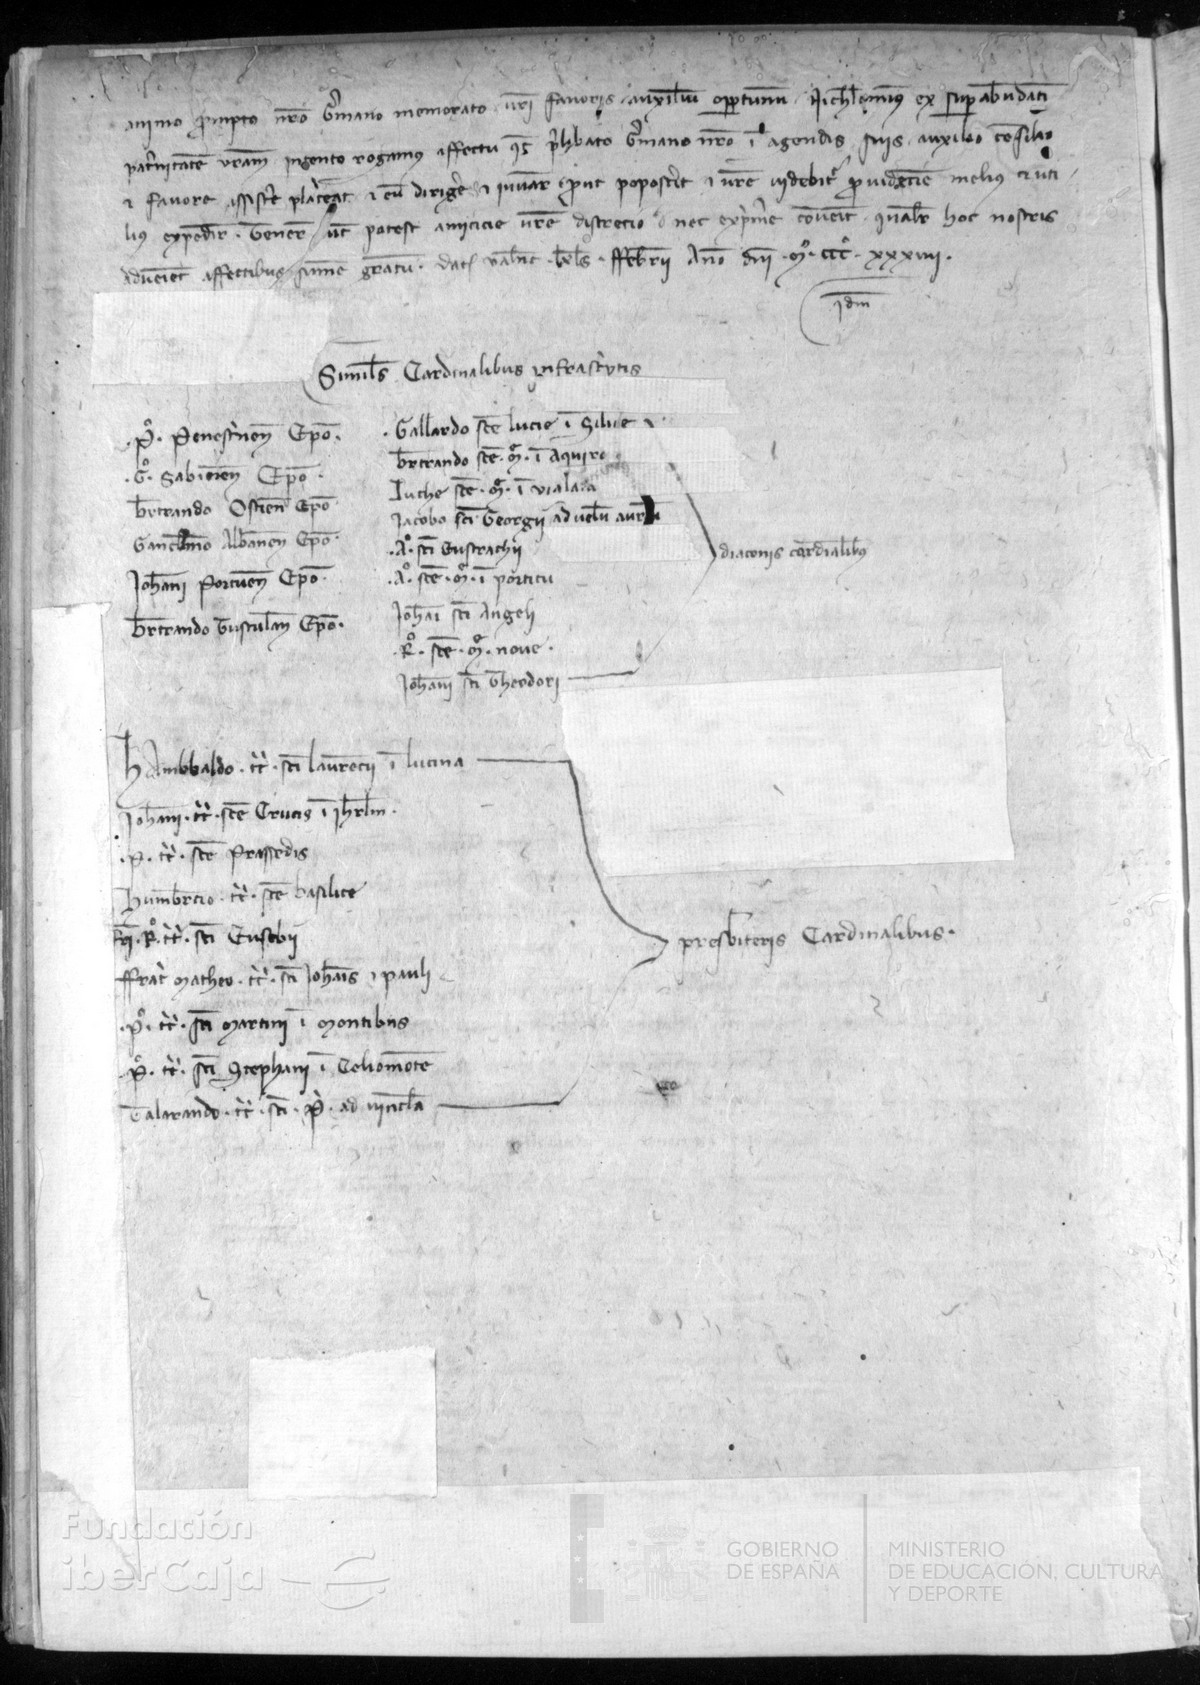 animo prompto nr̄o Gͥmano memorato ur̄i favoris auxiliū oportunū Nichilomīus ex suphabūdāti
patͥnitatē vr̄am ingenti rogamus affectu qͣ p̄libato Gͥmano nr̄o ī agendis suis auxilio cōsilio
⁊ favore assistͥe placeat ⁊ eū dirigͤe ⁊ iuuar̄ put poposcͥit ⁊ ur̄e videbitͬ ꝓuidēcie melius ⁊ uti
lius expedir̄
potest amicicie ur̄e discrecio nec expͥme cōueīt qualr̄ hoc nostris
adueiet affectibus sūme gratū. Dat̄ Valn̄c ffebr̄ii Ano dni .mͦ.cccͦ.xxxiiii.
Idm̄
Similes Cardinalibus infrascͥptis
.Pͦ. Penestͥneñ Epō.
.Gͦ. Sabineñ Epō.
Br̄trando Ostieñ Epō
Gaucelmo Albaneñ Epō.
Joħani Portueñ Epō.
Br̄trando Tusculañ Epō.
.Gallardo sc̄e lucie ī Silice
Br̄trando sc̄e.mͣ.ī Aquiro
Luche sc̄e.mͣ.ī vialata
Jacobo sc̄i Georgii ad uelū aureū
.Aͦ. sc̄i Eustachii
.Aͦ. sc̄e.mͣ.ī porticu
Joħai sc̄i Angeli
.Rͦ. sc̄e.mͣ. noue.
Joħani sc̄i Theodori
diaconis cardinalibȝ
Hambbaldo .tt̄. sc̄i laurēcii ī lucina
Joħani .tt̄. sc̄e Crucis ī Jħrl̄m.
.P. tt̄. sc̄e Praxedis
Humbr̄to .tt̄. sc̄e basilice
.Rͦ. tt̄. sc̄i Eusebii
ffratͥ Matheo .tt̄. sc̄i Joħais ⁊ pauli
.Pͦ. tt̄. sc̄i Martini ī montibus
.Pͦ. tt̄. sc̄i Stephani ī Celiomōte
Talarando .tt̄. sc̄i .Pͥ. ad vincl̄a
presbiteris Cardinalibus.
Fundación
iberCaja
GOBIERNO
DE ESPAÑA
MINISTERIO
DE EDUCACIÓN, CULTURA
Y DEPORTE